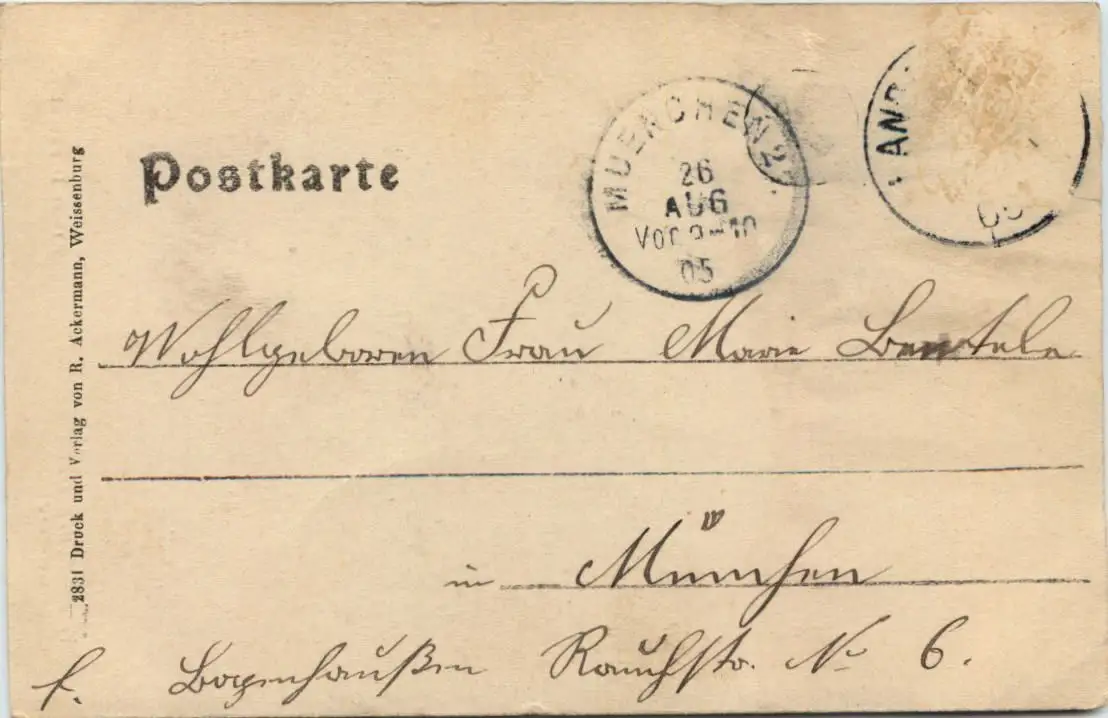 Postkarte
MUENCHEN 2
26
AUG
Vor 9-10
05
AN
Wohlgeboren Frau Marie Bentele
in München
f. Bogenhaußen Rauchstr. No 6.
2831 Druck und Verlag von R. Ackermann, Weissenburg